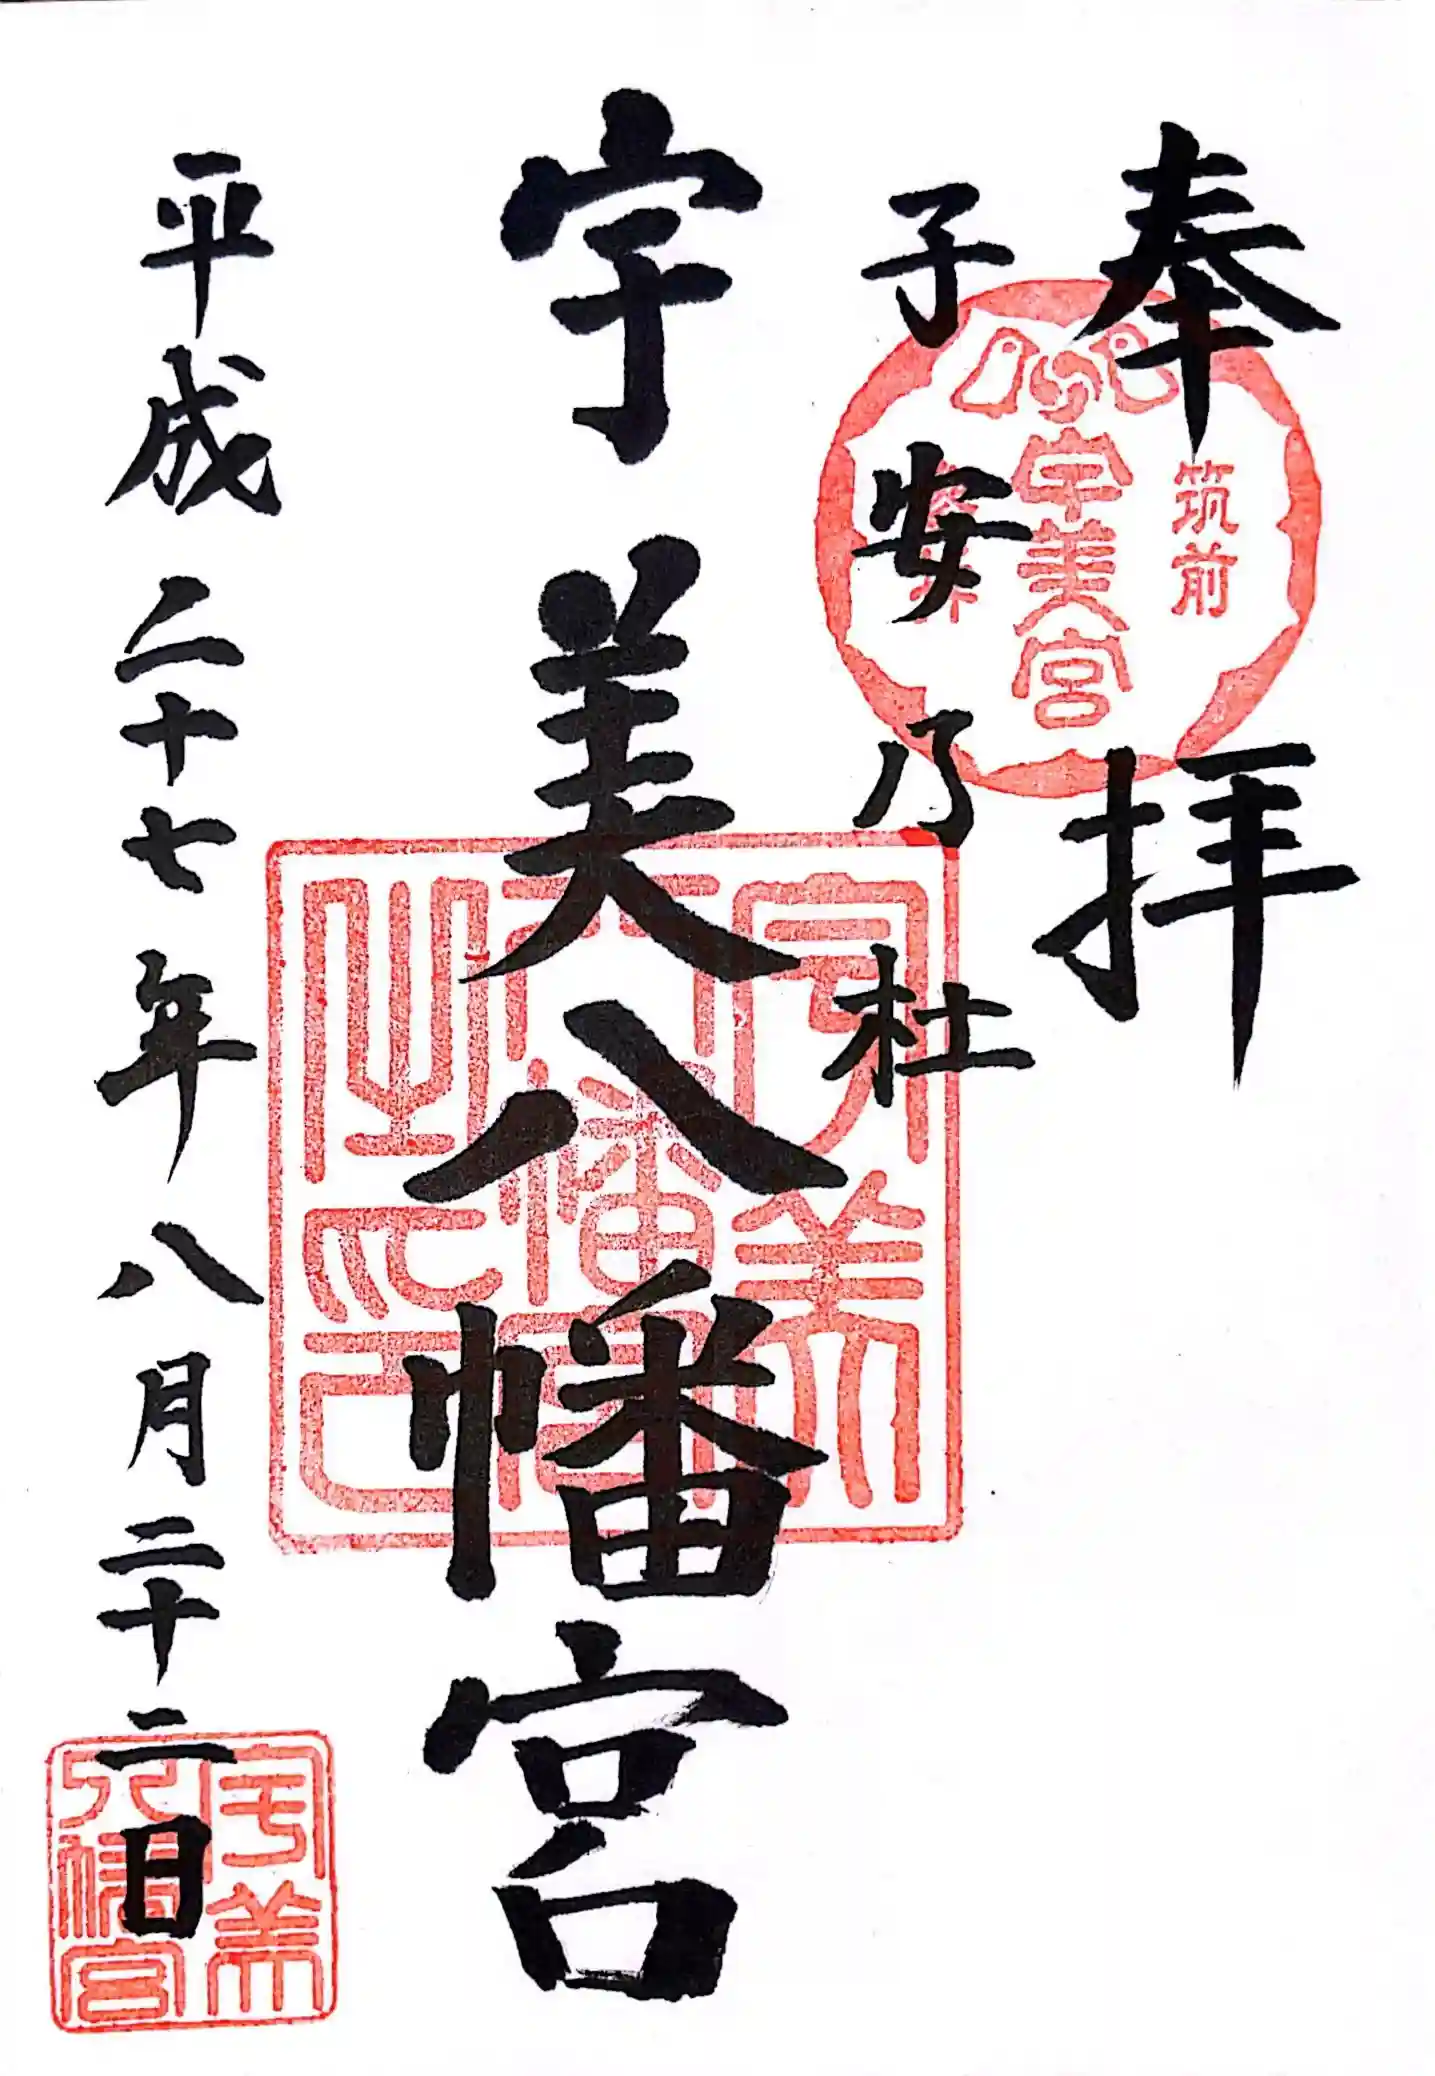 奉拝
筑前
宇美宮
子安乃杜
宇美八幡宮
宇美八幡宮之印
平成二十七年八月二十二日
宇美八幡宮